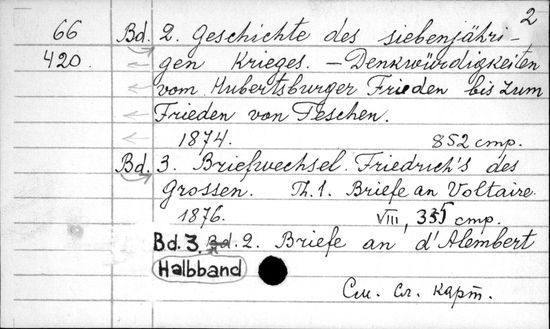 2
66 Bd. 2. Geschichte des siebenjähri-
420. gen Krieges. — Denkwürdigkeiten
vom Hubertsburger Frieden bis zum
Frieden von Teschen.
1874. 852 стр.
Bd. 3. Briefwechsel Friedrich's des
Grossen. Th. 1. Briefe an Voltaire
1876. VIII, 335 стр.
Bd. 3. Bd. 2. Briefe an d'Alembert
Halbband
См. сл. карт.